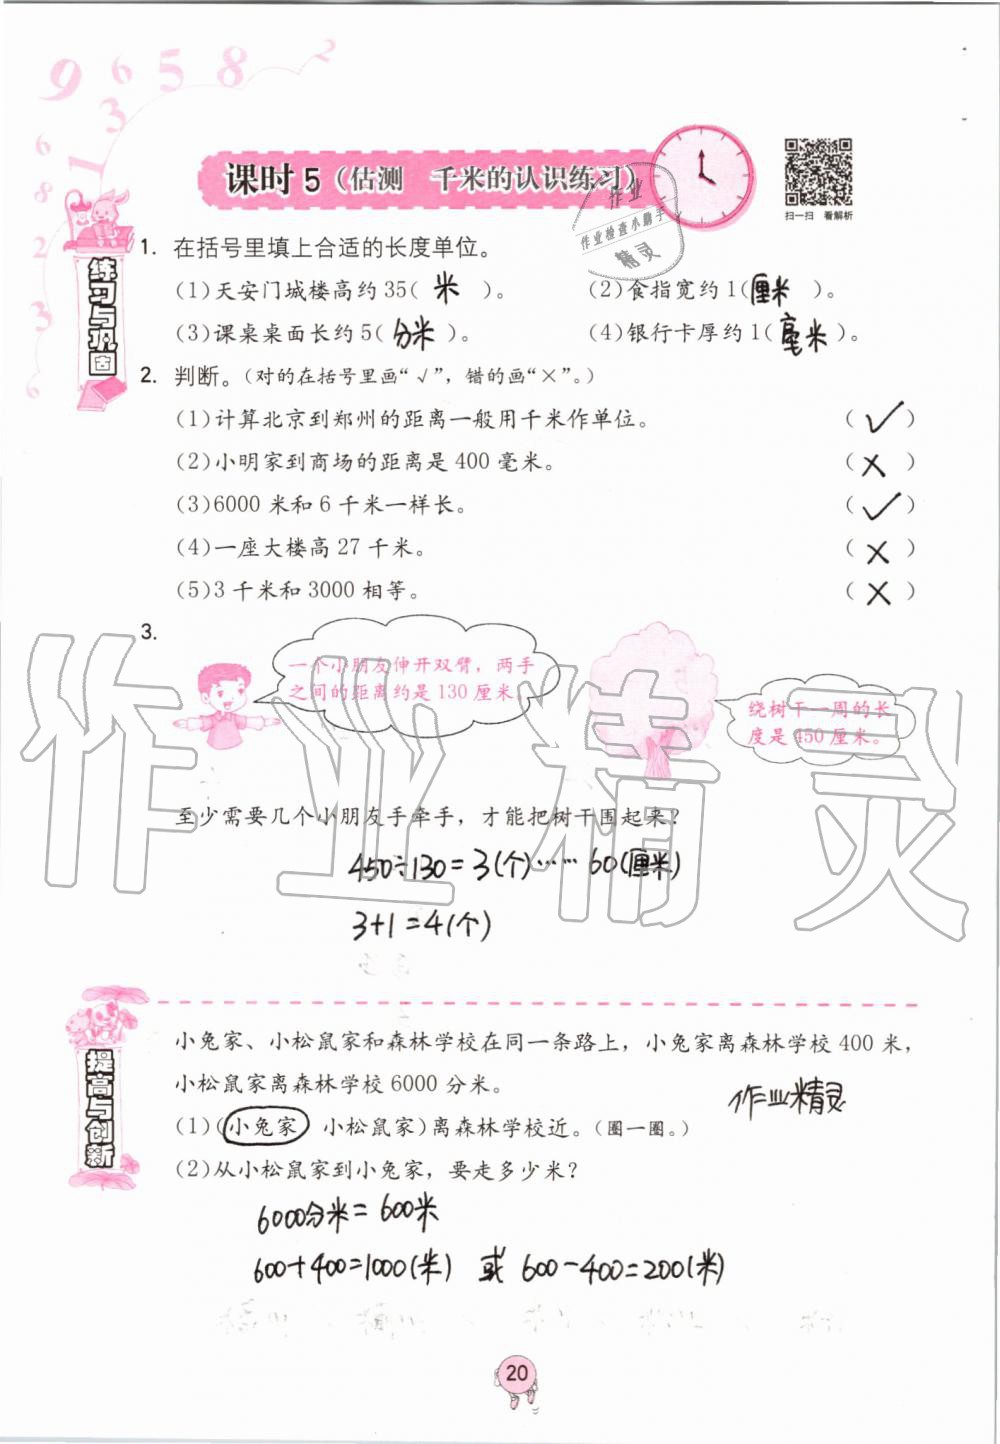 9 6 5 8 2
3
1
6
8
2
3
6
课时 5（估测　千米的认识练习）
扫一扫　看解析
作业
作业检查小助手
精灵
练习与巩固
1. 在括号里填上合适的长度单位。
(1)天安门城楼高约 35( 米 )。　(2)食指宽约 1(厘米 )。
(3)课桌桌面长约 5(分米 )。　(4)银行卡厚约 1(毫米 )。
2. 判断。（对的在括号里画“√”，错的画“×”。）
(1)计算北京到郑州的距离一般用千米作单位。　( ✓ )
(2)小明家到商场的距离是 400 毫米。　( × )
(3)6000 米和 6 千米一样长。　( ✓ )
(4)一座大楼高 27 千米。　( × )
(5)3 千米和 3000 相等。　( × )
3.
一个小朋友伸开双臂，两手
之间的距离约是 130 厘米。
绕树干一周的长
度是 450 厘米。
作业精灵
至少需要几个小朋友手牵手，才能把树干围起来？
450÷130=3(个)……60(厘米)
3+1=4(个)
提高与创新
小兔家、小松鼠家和森林学校在同一条路上，小兔家离森林学校 400 米，
小松鼠家离森林学校 6000 分米。
作业精灵
(1)(小兔家　小松鼠家)离森林学校近。（圈一圈。）
(2)从小松鼠家到小兔家，要走多少米？
6000分米=600米
600+400=1000(米) 或 600-400=200(米)
20